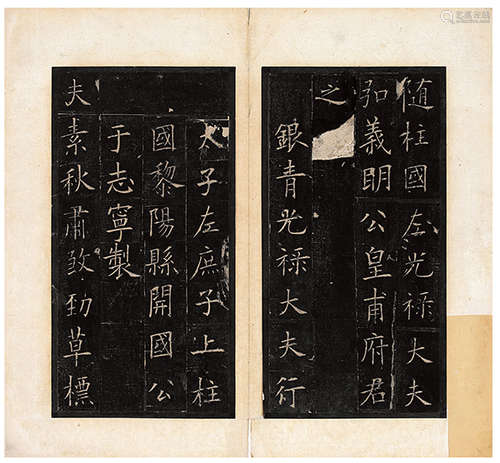 随柱國左光禄大夫
弘義明公皇甫府君
之
銀青光禄大夫行
太子左庶子上柱
國黎陽縣開國公
于志寧製
夫素秋肅致勁草標